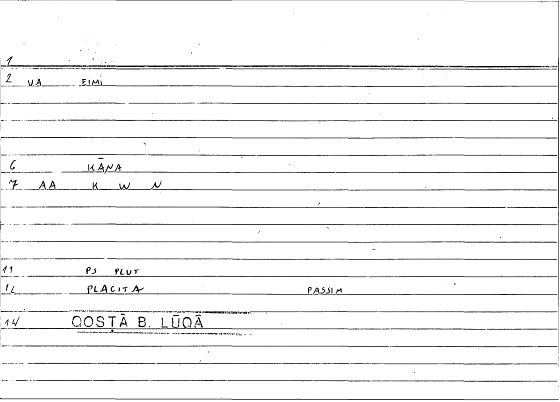 1
2 UA EIMI
6 KĀNA
7 AA K W N
11 PS PLUT
12 PLACITA PASSIM
14 QOSṬĀ B. LŪQĀ